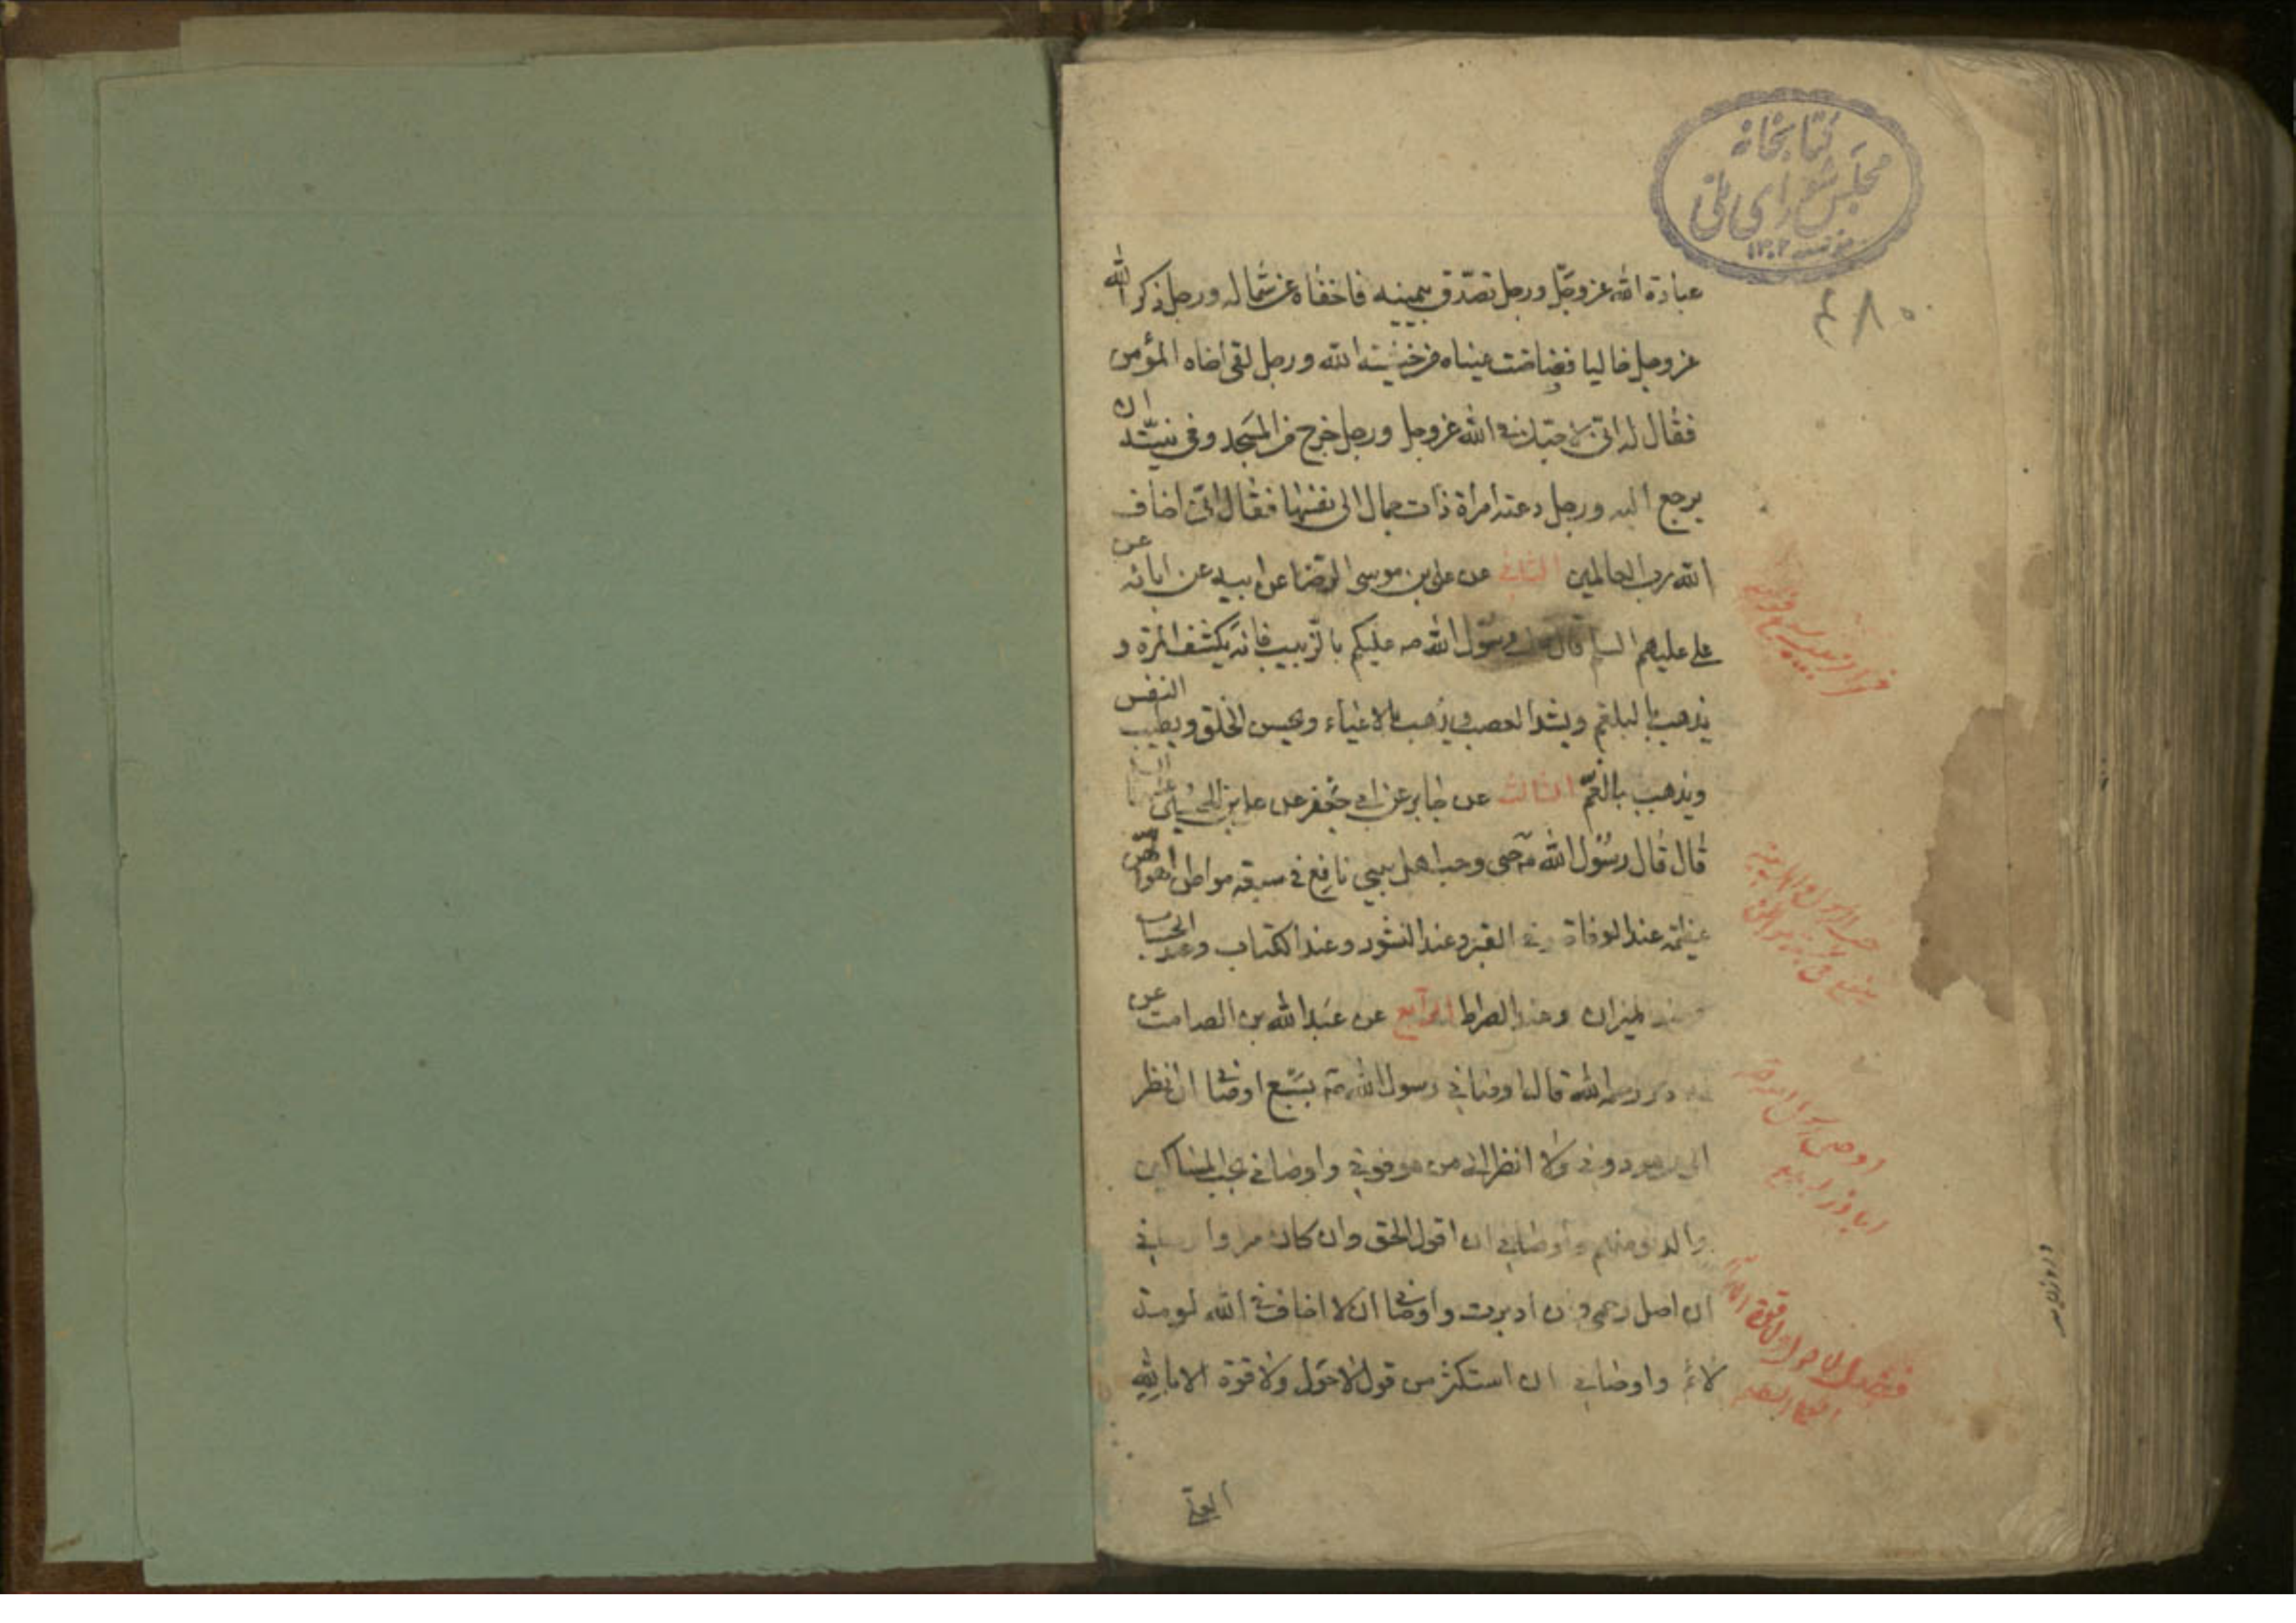 كتابخانه
مجلس شورای ملی
مؤسسه ۱۳۰۲
۴۸۰
عبادة الله عز وجلّ ورجل تصدّق بيمينه فاخفاه عن شماله ورجل ذكر الله
عز وجل خاليا ففاضت عيناه من خشية الله ورجل لقى اخاه المؤمن
فقال له انّى لاحبّك فى الله عز وجل ورجل خرج من المسجد وفى نيّته ان
يرجع اليه ورجل دعته امراة ذات جمال الى نفسها فقال انّى اخاف
الله رب العالمين الثانى عن على بن موسى الرضا عن ابيه عن ابائه عن
على عليهم السلم قال رسول الله ص عليكم بالزبيب فانه يكشف المرة و
يذهب بالبلغم ويشد العصب ويذهب بالاعياء ويحسن الخلق ويطيب النفس
ويذهب بالغمّ الثالث عن جابر عن ابى جعفر عن على بن الحسين
قال قال رسول الله ص حبى وحب اهل بيتى نافع فى سبعة مواطن اهوالهن
عظيمة عند الوفاة وفى القبر وعند النشور وعند الكتاب وعند الحساب
وعند الميزان وعند الصراط الرابع عن عبد الله بن الصامت عن
ذر رحمه الله قال اوصانى رسول الله ص بسبع اوصانى ان انظر
الى من هو دونى ولا انظر الى من هو فوقى واوصانى بحب المساكين
والدنو منهم واوصانى ان اقول الحق وان كان مرا واوصانى
ان اصل رحمى وان ادبرت واوصانى ان لا اخاف فى الله لومة
لائم واوصانى ان استكثر من قول لا حول ولا قوة الا بالله
العلى